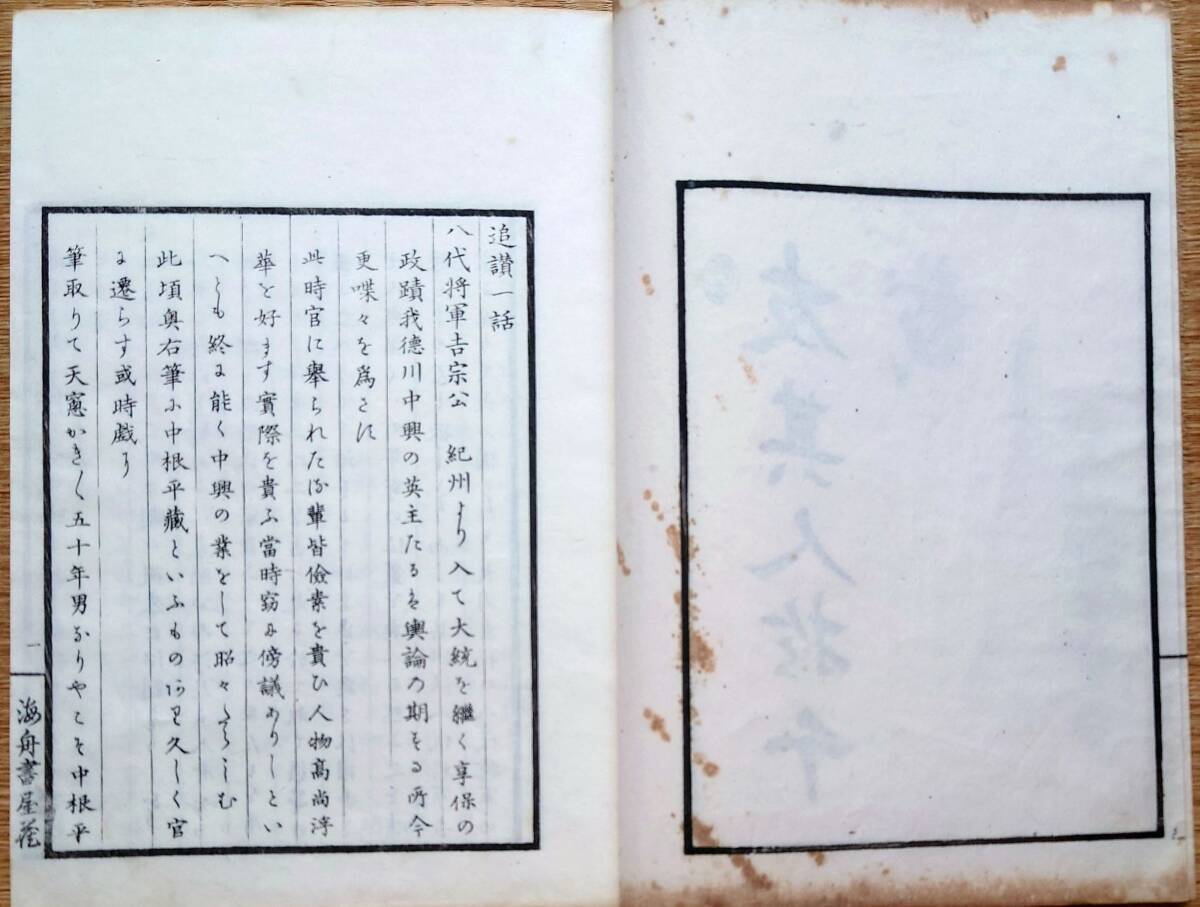 追讃一話
八代将軍吉宗公 紀州より入て大統を繼く享保の
政蹟我徳川中興の英主たるを輿論の期する所今
更喋々を爲さす
此時官に擧られたる輩皆儉素を貴ひ人物高尚浮
華を好ます實際を貴ふ當時窃に傍議ありしとい
へとも終に能く中興の業をして昭々たらしむ
此頃奥右筆に中根平藏といふものあり久しく官
に遷らす或時戯に
筆取りて天窓かきかき五十年男なりやこそ中根平
一
海舟書屋蔵